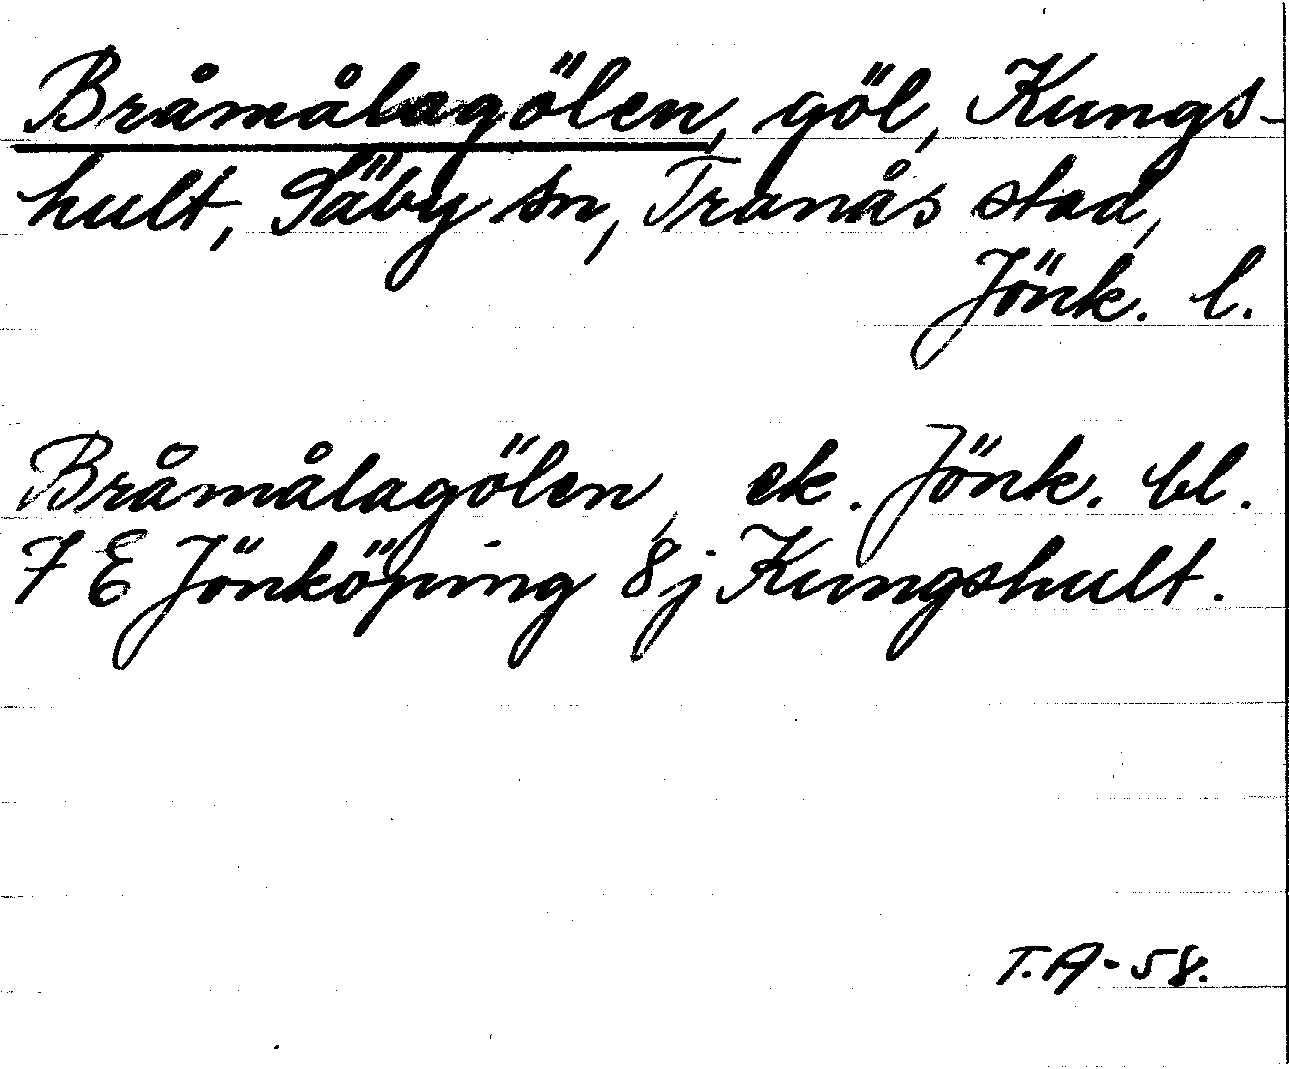 Bråmålagölen, göl, Kungs-
hult, Säby sn, Tranås stad,
Jönk. l.
Bråmålagölen, ek. Jönk. bl.
7 E Jönköping 8j Kungshult.
T.A-58.